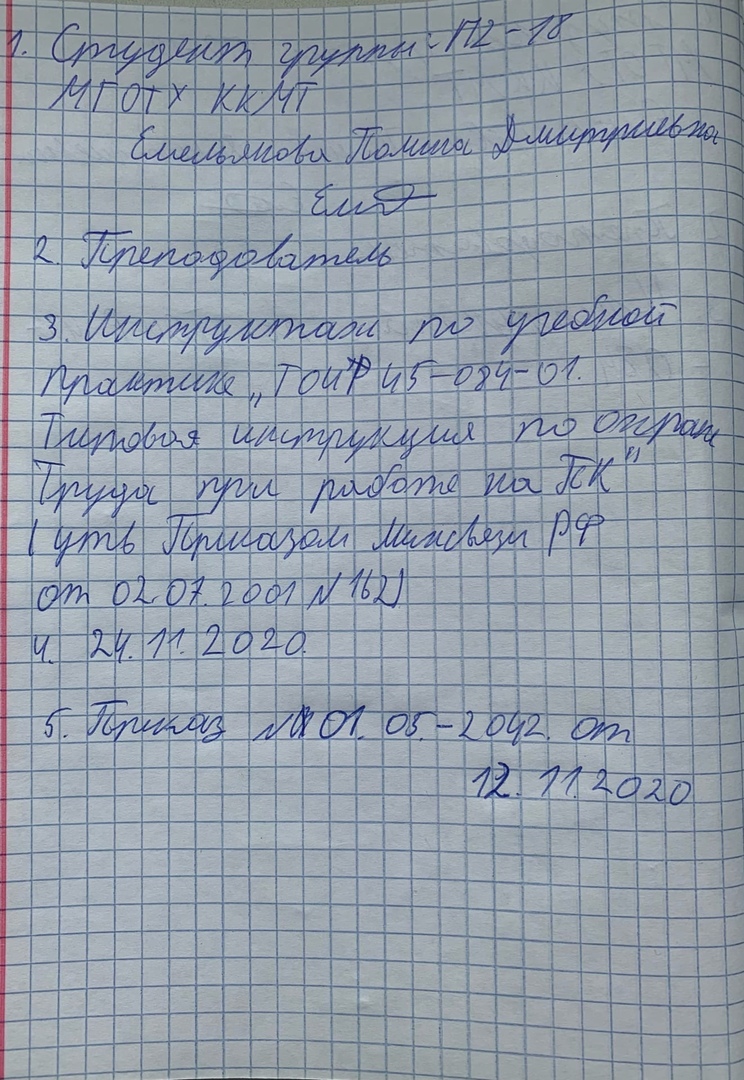 1. Студент группы: П2-18
МГОТУ ККМТ
Емельянова Полина Дмитриевна
2. Преподаватель
3. Инструктаж по учебной
практике „ТОИ Р 45-084-01.
Типовая инструкция по охране
Труда при работе на ПК"
(утв Приказом Минсвязи РФ
от 02.07.2001 N 162)
4. 24.11.2020.
5. Приказ № 01. 05.-2042. от
12.11.2020